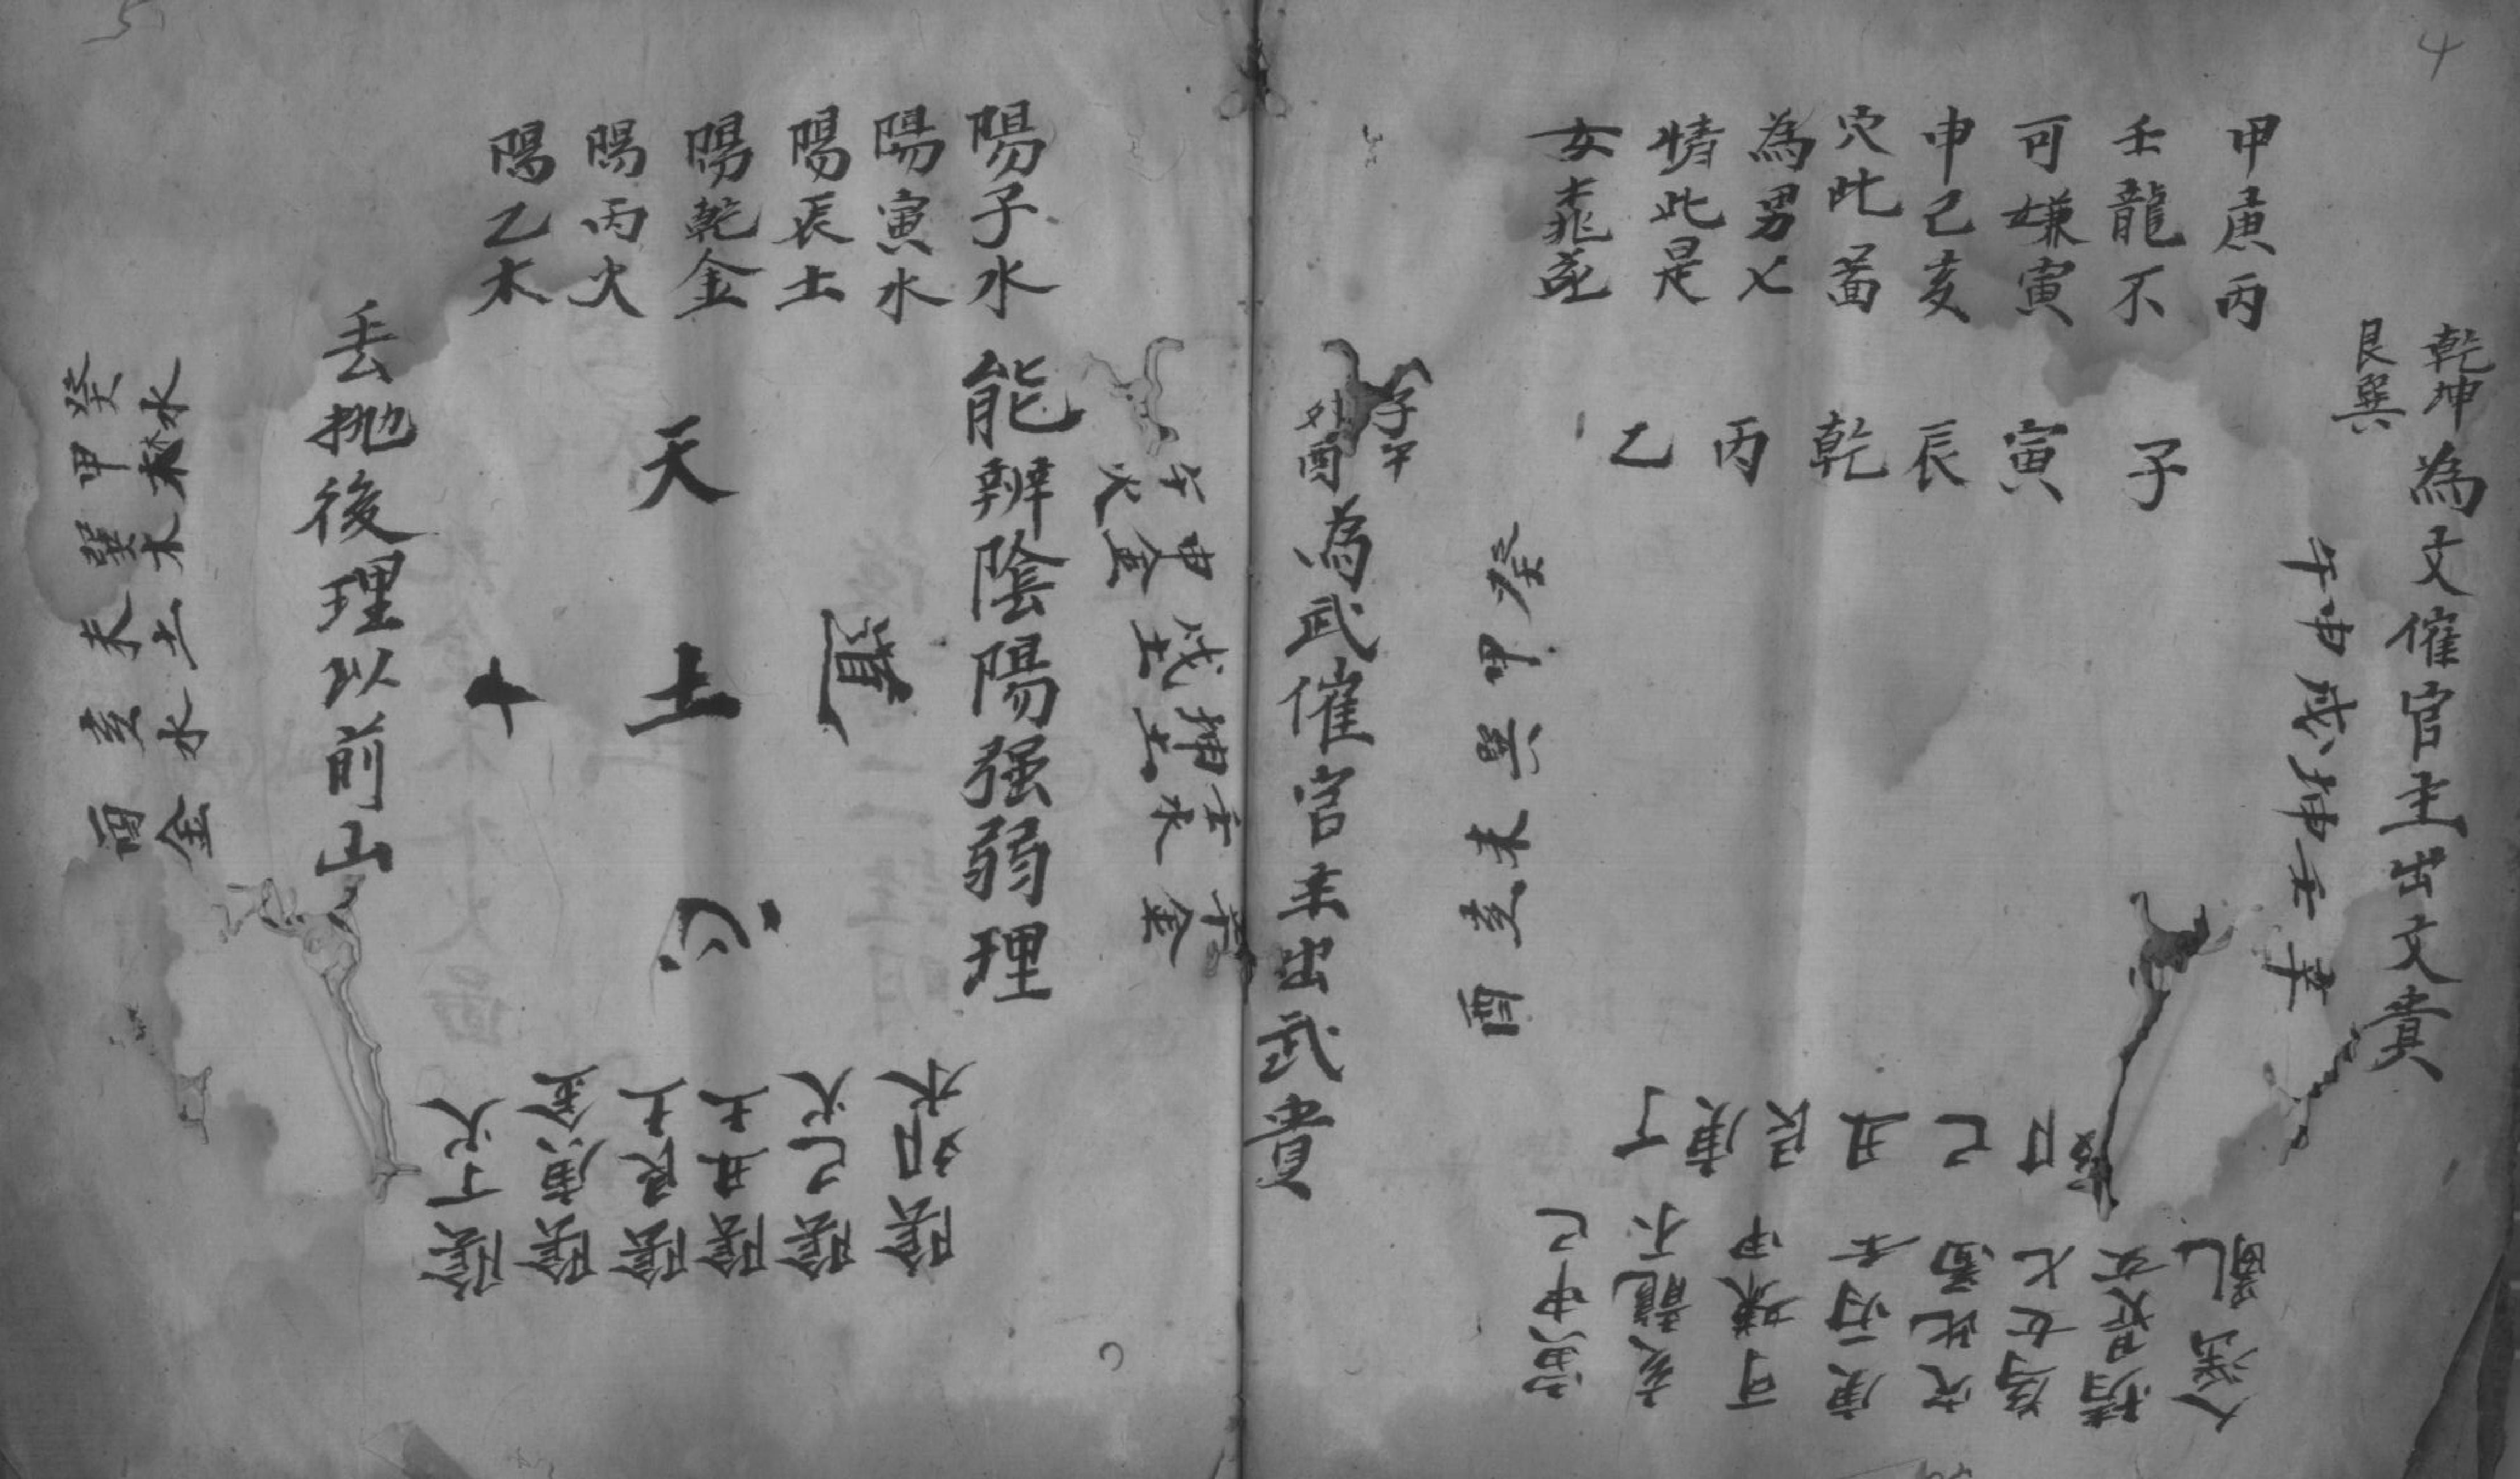 4
乾坤
艮巽
為文催官主出文貴
甲庚丙
壬龍不
可嫌寅
申己亥
穴此畨
為男七
情此是
女
子
寅
辰
乾
丙
乙
午申戌坤壬辛
癸甲巽未亥酉
己
丑
艮
庚
丁
寅申己
亥龍不
可嫌甲
庚丙壬
穴此畨
為女七
情是女
人淫亂
子午
卯酉
為武催官主出武貴
5
午火
申金
戌土
坤土
壬水
辛金
陽子水
陽寅水
陽辰土
陽乾金
陽丙火
陽乙木
能辨陰陽强弱理
天
土
十
心
丢抛後理以前山
陰卯木
陰己火
陰丑土
陰艮土
陰庚金
陰丁火
癸水
甲木
巽木
未土
亥水
酉金